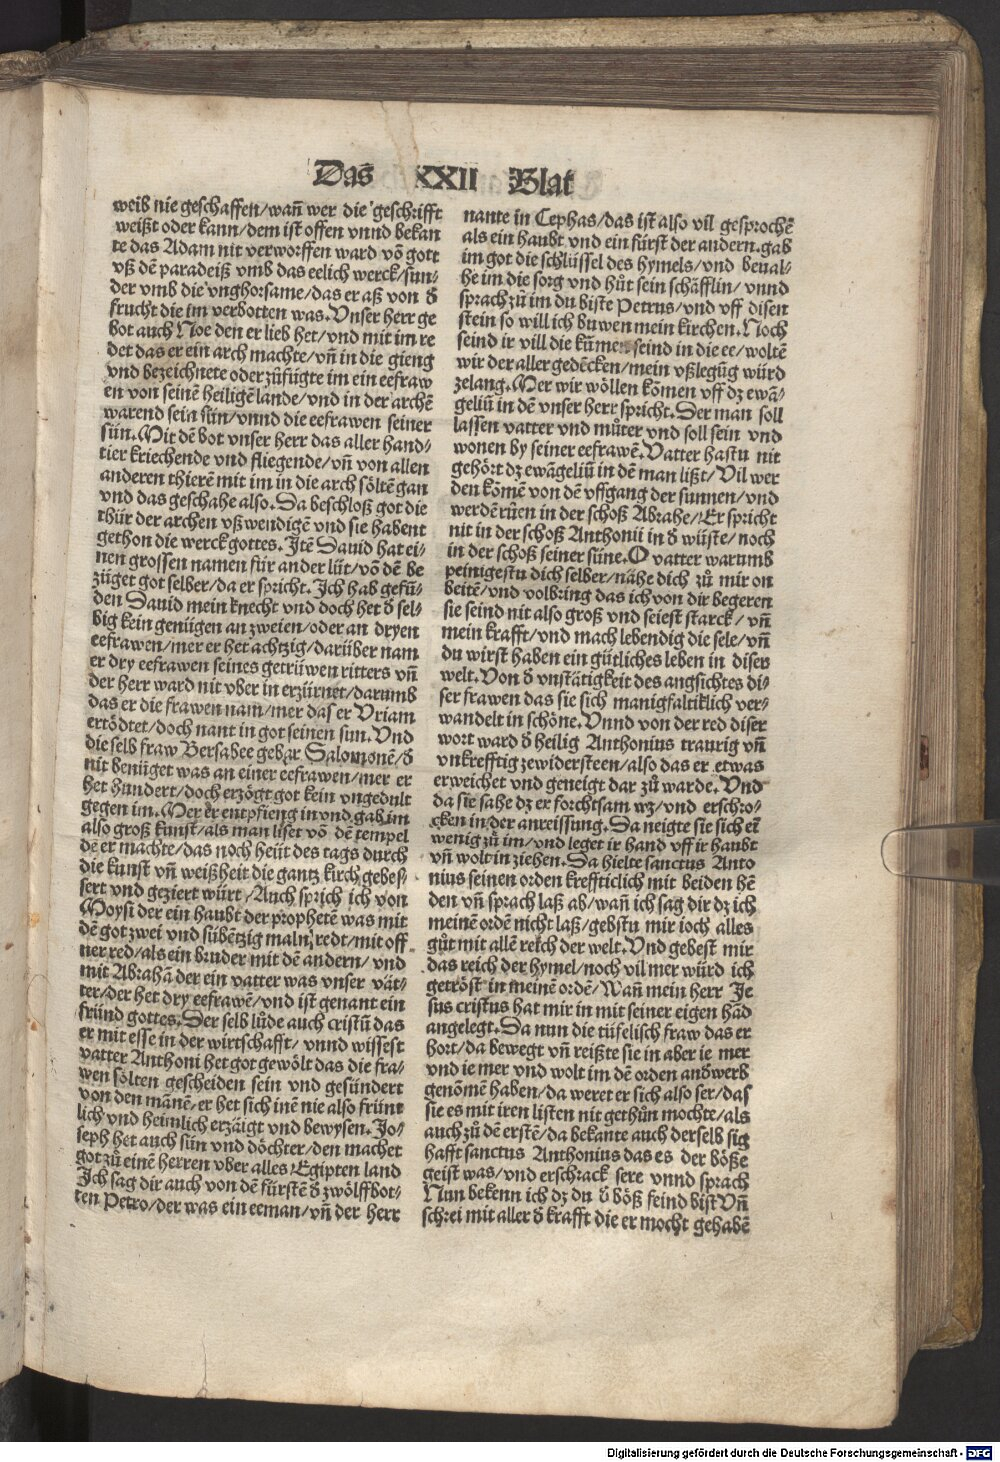 Das XXII Blat
weib nie geschaffen/wañ wer die geschrifft
weißt oder kann/dem ist offen vnnd bekan
te das Adam nit verworffen ward võ gott
vß dẽ paradeiß vmb das eelich werck/sun-
der vmb die vnghorsame/das er aß von d̃
frucht die im verbotten was. Vnser herr ge
bot auch Noe den er lieb het/vnd mit im re
det das er ein arch machte/vñ in die gieng
vnd bezeichnete oder zůfügte im ein eefraw
en von seinẽ heiligẽ lande/vnd in der archẽ
warend sein sün/vnnd die eefrawen seiner
sün. Mit dẽ bot vnser herr das aller hand-
tier kriechende vnd fliegende/vñ von allen
anderen thierẽ mit im in die arch söltẽ gan
vnd das geschahe also. Da beschloß got die
thür der archen vßwendigẽ vnd sie habent
gethon die werck gottes. Itẽ Dauid hat ei-
nen grossen namen für ander lüt/võ dẽ be
züget got selber/da er spricht. Ich hab gefũ-
den Dauid mein knecht vnd doch het d̃ sel-
big kein genügen an zweien/oder an dryen
eefrawen/mer er het achtzig/darüber nam
er dry eefrawen seines getrüwen ritters vñ
der herr ward nit vber in erzürnet/darumb
das er die frawen nam/mer das er Vriam
ertödtet/doch nant in got seinen sun. Vnd
die selb fraw Bersabee gebar Salomonẽ/d̃
nit benüget was an einer eefrawen/mer er
het hundert/doch erzögt got kein vngedult
gegen im. Mer er entpfieng in vnd gab im
also groß kunst/als man liset võ dẽ tempel
dẽ er machte/das noch heüt des tags durch
die kunst vñ weißheit die gantz kirch gebes-
sert vnd geziert würt. Auch sprich ich von
Moysi der ein haubt der prophetẽ was mit
dẽ got zwei vnd sübẽtzig maln redt/mit off
ner red/als ein bruder mit dẽ andern/vnd
mit Abrahã der ein vatter was vnser vät-
ter/der het dry eefrawẽ/vnd ist genant ein
fründ gottes. Der selb lüde auch cristũ das
er mit esse in der wirtschafft/vnnd wissest
vatter Anthoni het got gewölt das die fra-
wen sölten gescheiden sein vnd gesündert
von den mãnẽ/er het sich inẽ nie also frünt
lich vnd heimlich erzäigt vnd bewysen. Jo-
seph het auch sün vnd döchter/den machet
got zů einẽ herren vber alles Egipten land
Ich sag dir auch von dẽ fürstẽ d̃ zwölffbot-
ten Petro/der was ein eeman/vñ der herr
nante in Cephas/das ist also vil gesprochẽ
als ein haubt vnd ein fürst der andern. gab
im got die schlüssel des hymels/vnd beual-
he im die sorg vnd hůt sein schäfflin/vnnd
sprach zů im du biste Petrus/vnd vff disen
stein so will ich buwen mein kirchen. Noch
seind ir vill die kumen seind in die ee/woltẽ
wir der aller gedẽcken/mein vßlegũg würd
zelang. Mer wir wöllen kõmen vff dz ewã-
geliũ in dẽ vnser herr spricht. Der man soll
lassen vatter vnd můter vnd soll sein vnd
wonen by seiner eefrawẽ. Vatter hastu nit
gehört dz ewãgeliũ in dẽ man lißt/Vil wer
den kõmẽ von dẽ vffgang der sunnen/vnd
werdẽ rüen in der schoß Abrahe/Er spricht
nit in der schoß Anthonii in d̃ wüste/noch
in der schoß seiner süne. O vatter warumb
peinigestu dich selber/nähe dich zů mir on
beitẽ/vnd volbring das ich von dir begeren
sie seind nit also groß vnd seiest starck/vñ
mein krafft/vnd mach lebendig die sele/vñ
du wirst haben ein gütliches leben in diser
welt. Von d̃ vnstätigkeit des angsichtes di-
ser frawen das sie sich manigfaltiklich ver-
wandelt in schöne. Vnnd von der red diser
wort ward d̃ heilig Anthonius traurig vñ
vnkrefftig zewidersteen/also das er etwas
erweichet vnd geneigt dar zů warde. Vnd
da sie sahe dz er forchtsam wz/vnd erschro-
cken in der anreissung. Da neigte sie sich eĩ
wenig zů im/vnd leget ir hand vff ir haubt
vñ wolt in ziehen. Da hielte sanctus Anto
nius seinen orden kreffticlich mit beiden hẽ
den vñ sprach laß ab/wañ ich sag dir dz ich
meinẽ ordẽ nicht laß/gebstu mir ioch alles
gůt mit allẽ reich der welt. Vnd gebest mir
das reich der hymel/noch vil mer würd ich
getröst in meinẽ ordẽ/Wañ mein herr Je
sus cristus hat mir in mit seiner eigen hãd
angelegt. Da nun die tüfelisch fraw das er
hort/da bewegt vñ reißte sie in aber ie mer
vnd ie mer vnd wolt im dẽ orden and̃werb
genõmẽ haben/da weret er sich also ser/das
sie es mit iren listen nit gethůn mochte/als
auch zů dẽ erstẽ/da bekante auch derselb sig
hafft sanctus Anthonius das es der böße
geist was/vnd erschrack sere vnnd sprach
Nun bekenn ich dz du d̃ böß feind bist Vñ
schrei mit aller d̃ krafft die er mocht gehabẽ
Digitalisierung gefördert durch die Deutsche Forschungsgemeinschaft - DFG